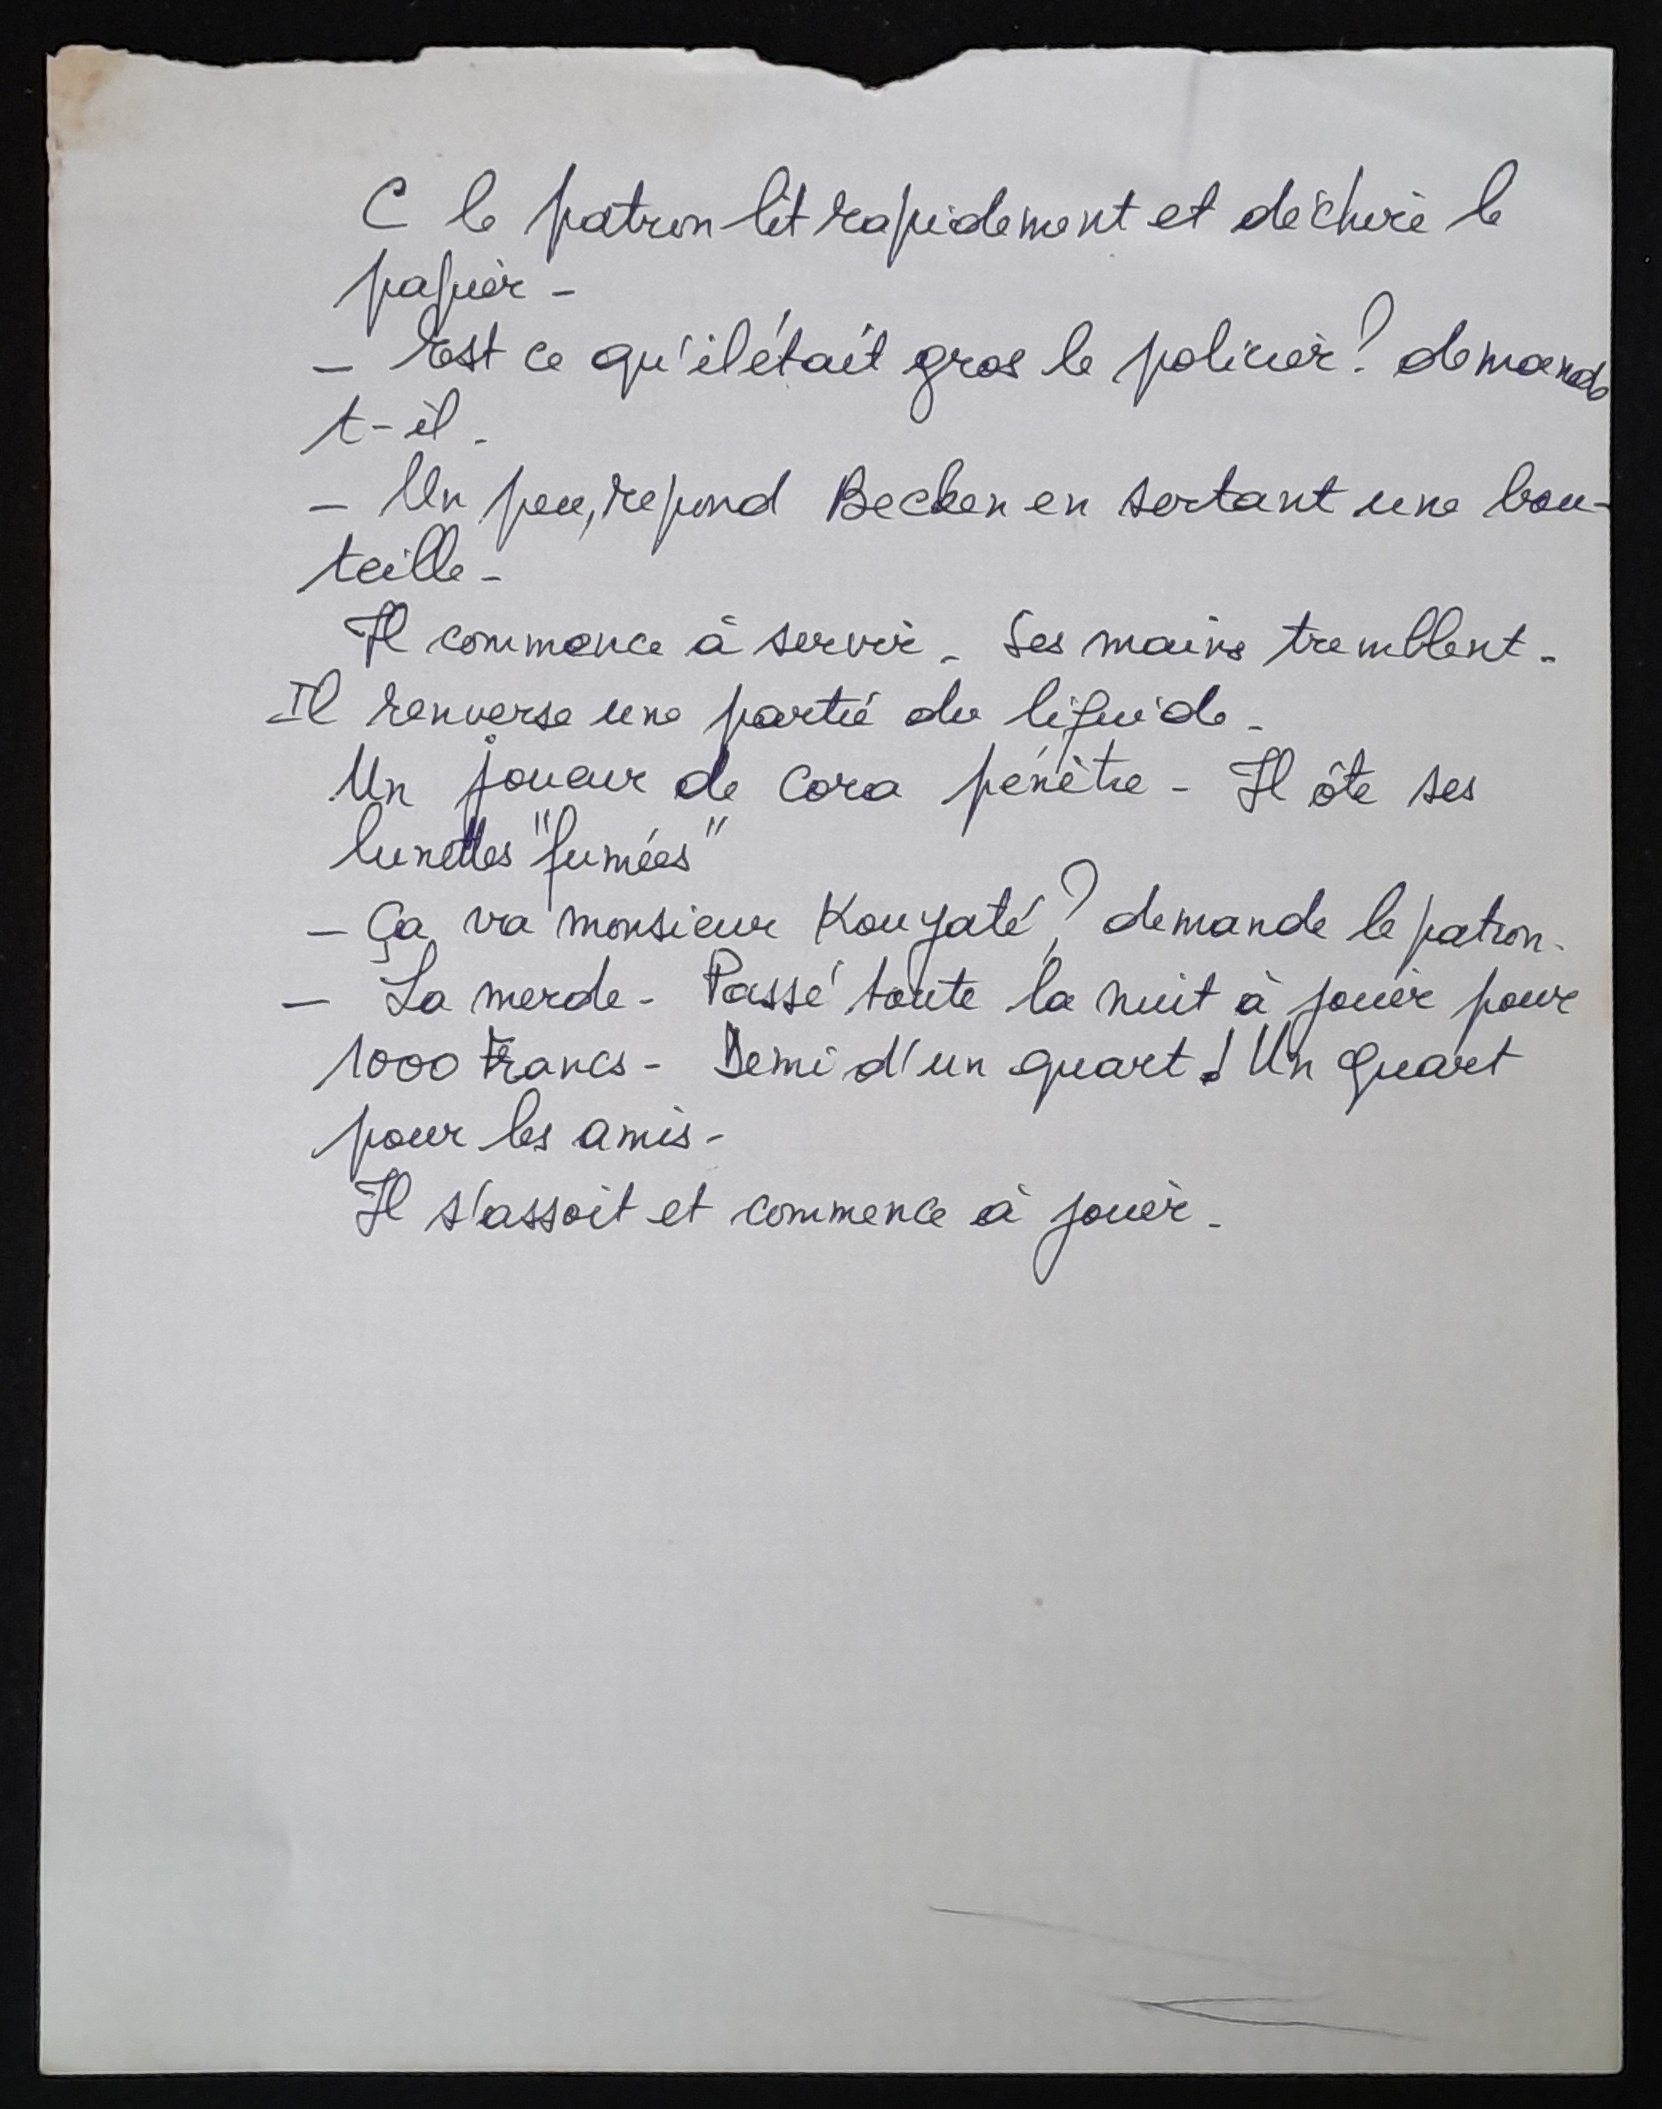 C le patron lit rapidement et déchire le
papier -
- Est ce qu'il était gros le policier ? demande
t-il -
- Un peu, répond Becken en sortant une bou-
teille -
Il commence à servir - Ses mains tremblent -
Il renverse une partie du liquide -
Un joueur de cora pénètre - Il ôte ses
lunettes "fumées"
- Ça va monsieur Kouyaté ? demande le patron -
- La merde - Passé toute la nuit à jouer pour
1000 Francs - Demi d'un quart ! Un quart
pour les amis -
Il s'assoit et commence à jouer -